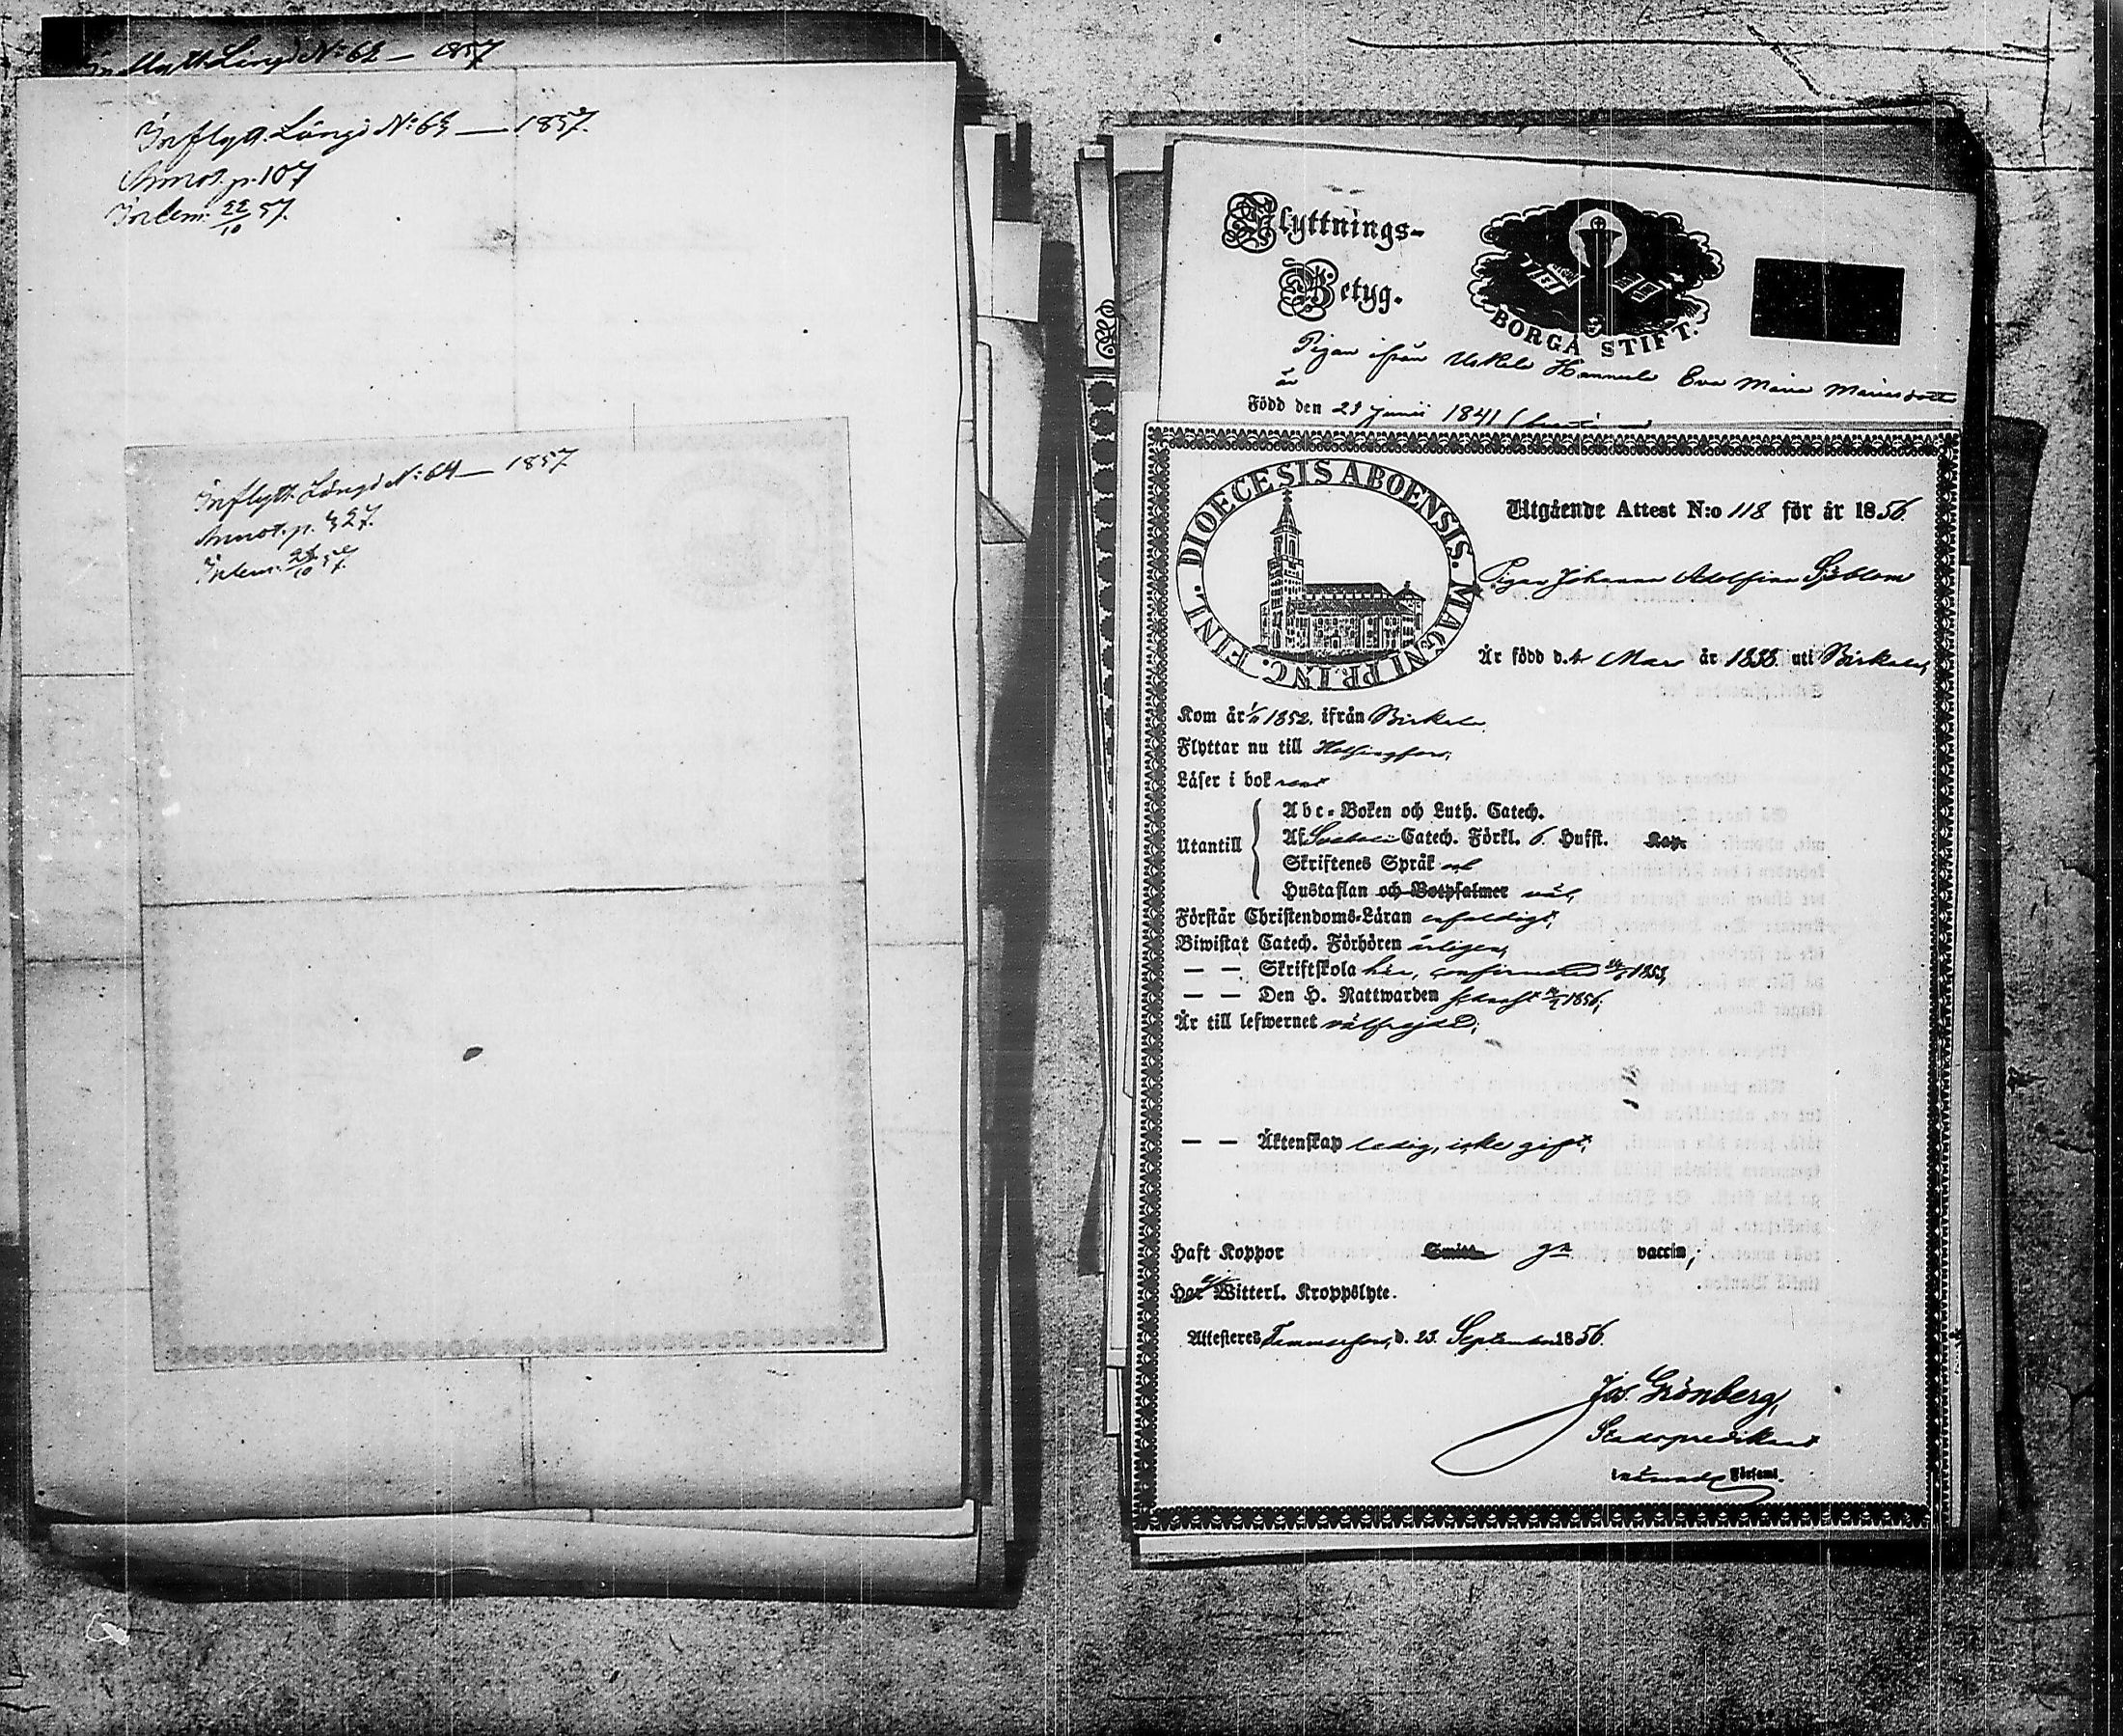 Inflytt. Längd N:o 62 — 1857
Inflytt. Längd N:o 63 — 1857.
Annot. p. 107
Inlem. 22/10 57.
Inflytt. Längd N:o 64 — 1857
Annot. p. 327.
Inlem. 10 57.
Flyttnings-
Betyg.
BORGÅ STIFT.
Pigan ifrån Uskela Eva Maria
är
Född den 23 junii 1841
DIOECESIS ABOENSIS. MAGNI PRINC. FINL.
Utgående Attest N:o 118 för år 1856.
Pigan Johanna Adolfina Sjöblom
Är född d. 4 Mars år 1838. uti Birkala,
Kom år 1852. ifrån Birkala
Flyttar nu till Helsingfors,
Läser i bok rent
Utantill
Abc-Boken och Luth. Catech.
Af Svebelii Catech. Förkl. 6. Hufst. Kap.
Skriftenes Språk
Hustaflan och Botpsalmer väl,
Förstår Christendoms-Läran enfaldigt,
Biwistat Catech. Förhören årligen,
— — Skriftskola här, confirmerad 1853,
— — Den H. Nattwarden 1856;
Är till lefwernet välfrejdad;
— — Äktenskap ledig, icke gift,
Haft Koppor Smitt. gn vaccin;
Har ej Witterl. Kroppslyte.
Attesteres Tammerfors, d. 23. September 1856.
Jos. Grönberg,
Stadspredikant
Församl.